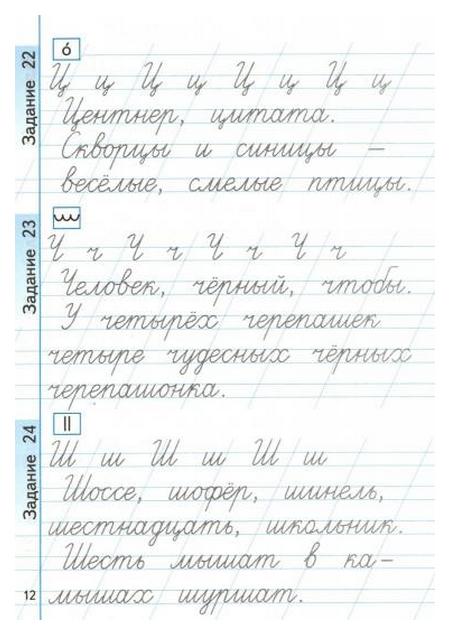 Задание 22
б
Ц ц Ц ц Ц ц Ц ц
Центнер, цитата.
Скворцы и синицы –
весёлые, смелые птицы.
Задание 23
Ч ч Ч ч Ч ч Ч ч
Человек, чёрный, чтобы.
У четырёх черепашек
четыре чудесных чёрных
черепашонка.
Задание 24
Ш ш Ш ш Ш ш
Шоссе, шофёр, шинель,
шестнадцать, школьник.
Шесть мышат в ка–
мышах шуршат.
12